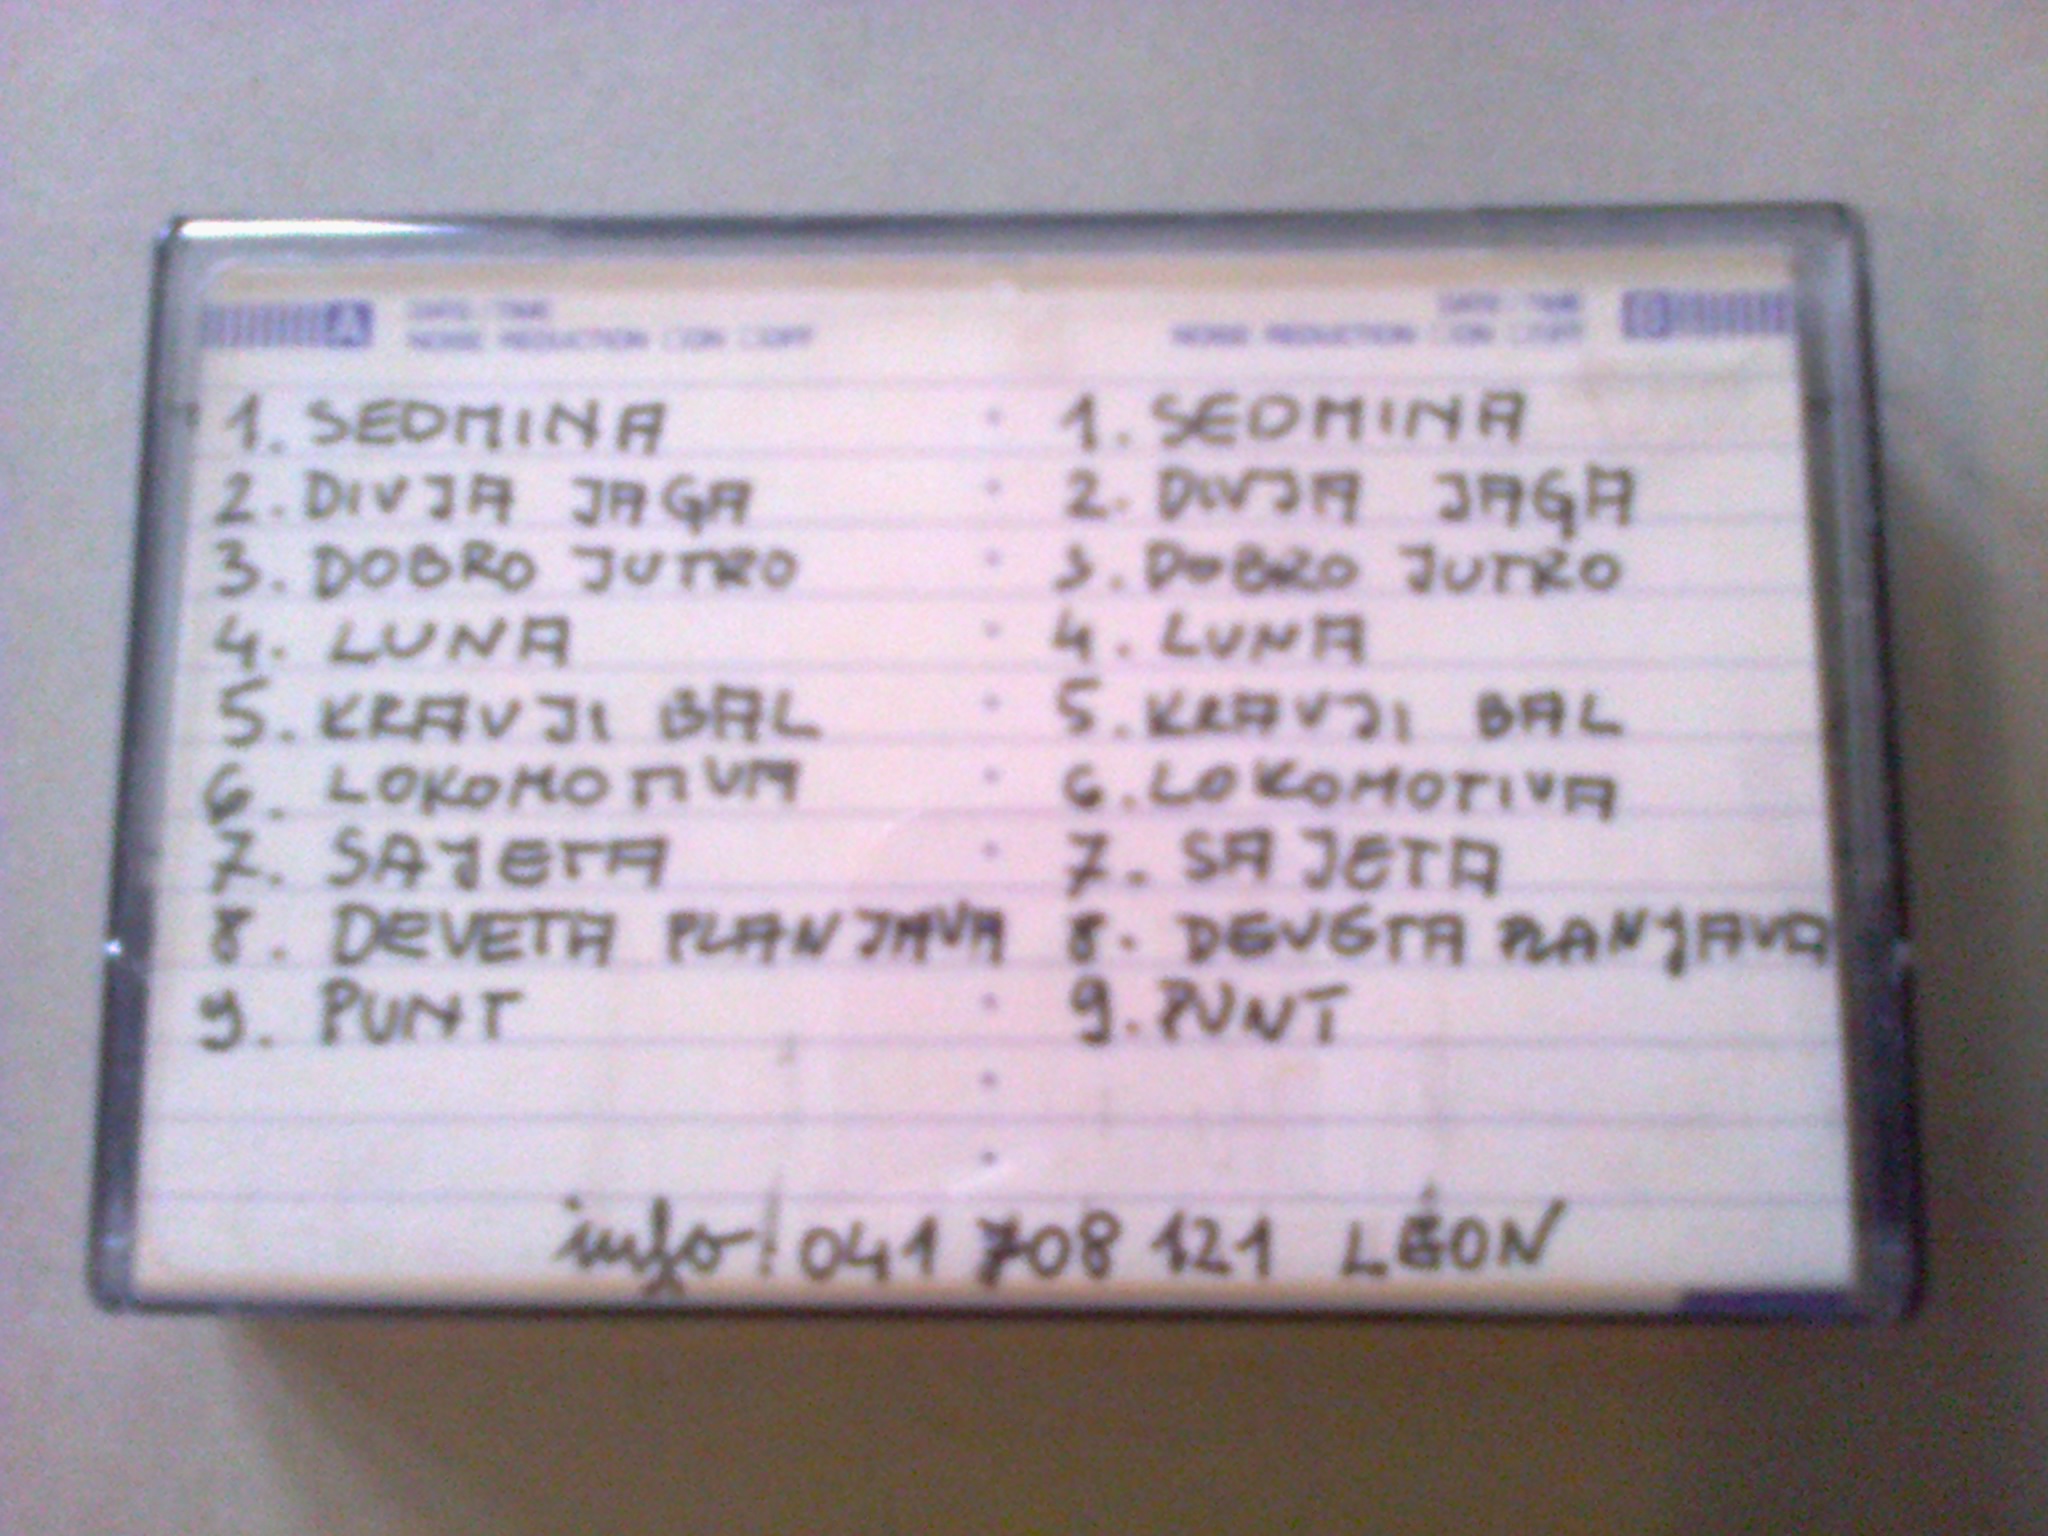 A DATE / TIME
NOISE REDUCTION □ON □OFF
DATE / TIME B
NOISE REDUCTION □ON □OFF
1. SEDMINA
2. DIVJA JAGA
3. DOBRO JUTRO
4. LUNA
5. KRAVJI BAL
6. LOKOMOTIVA
7. SAJETA
8. DEVETA PLANJAVA
9. PUNT
1. SEDMINA
2. DIVJA JAGA
3. DOBRO JUTRO
4. LUNA
5. KRAVJI BAL
6. LOKOMOTIVA
7. SAJETA
8. DEVETA PLANJAVA
9. PUNT
info! 041 708 121 LÉON